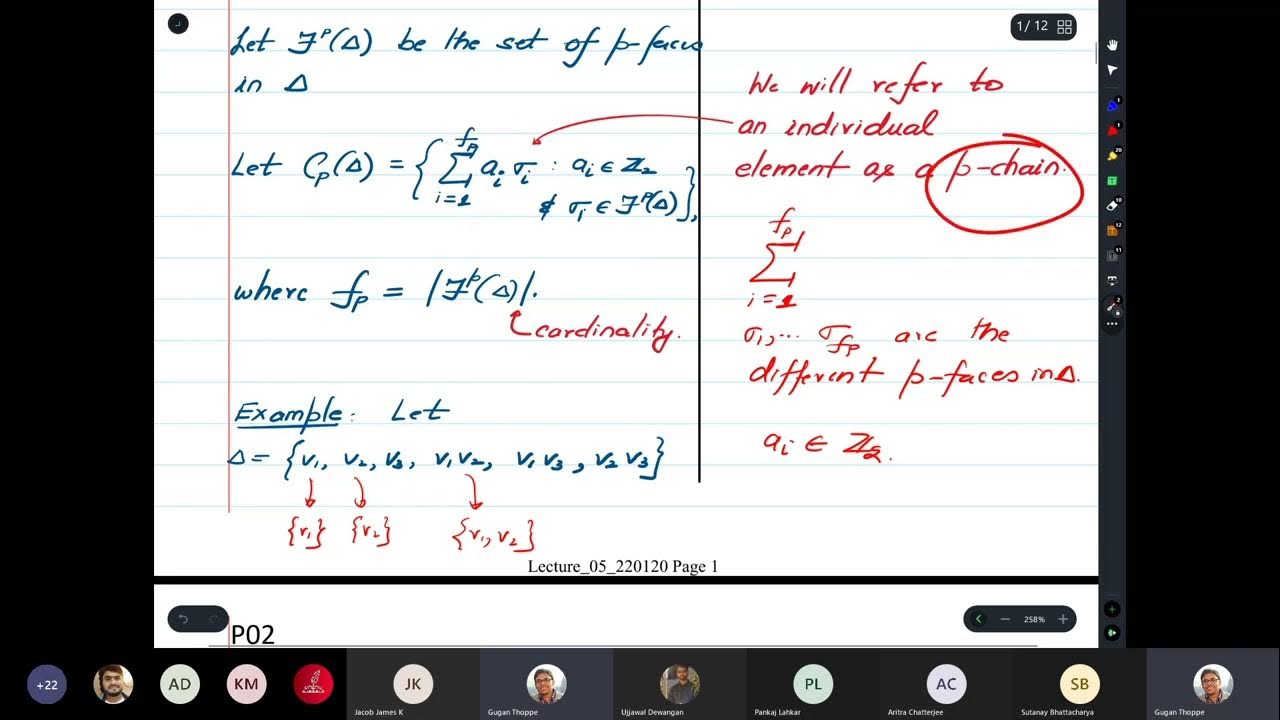 Let ℱᵖ(Δ) be the set of p-faces
in Δ
Let Cₚ(Δ) = { ∑_{i=1}^{fₚ} aᵢ σᵢ : aᵢ ∈ ℤ₂
& σᵢ ∈ ℱᵖ(Δ) },
where fₚ = |ℱᵖ(Δ)|.
cardinality.
Example: Let
Δ = {v₁, v₂, v₃, v₁v₂, v₁v₃, v₂v₃}
{v₁} {v₂} {v₁, v₂}
We will refer to
an individual
element as a p-chain.
∑_{i=1}^{fₚ}
σ₁, ... σ_{fₚ} are the
different p-faces in Δ.
aᵢ ∈ ℤ₂.
1 / 12
Lecture_05_220120 Page 1
258%
P02
+22
AD
KM
JK
PL
AC
SB
Jacob James K
Gugan Thoppe
Ujjawal Dewangan
Pankaj Lahkar
Aritra Chatterjee
Sutanay Bhattacharya
Gugan Thoppe